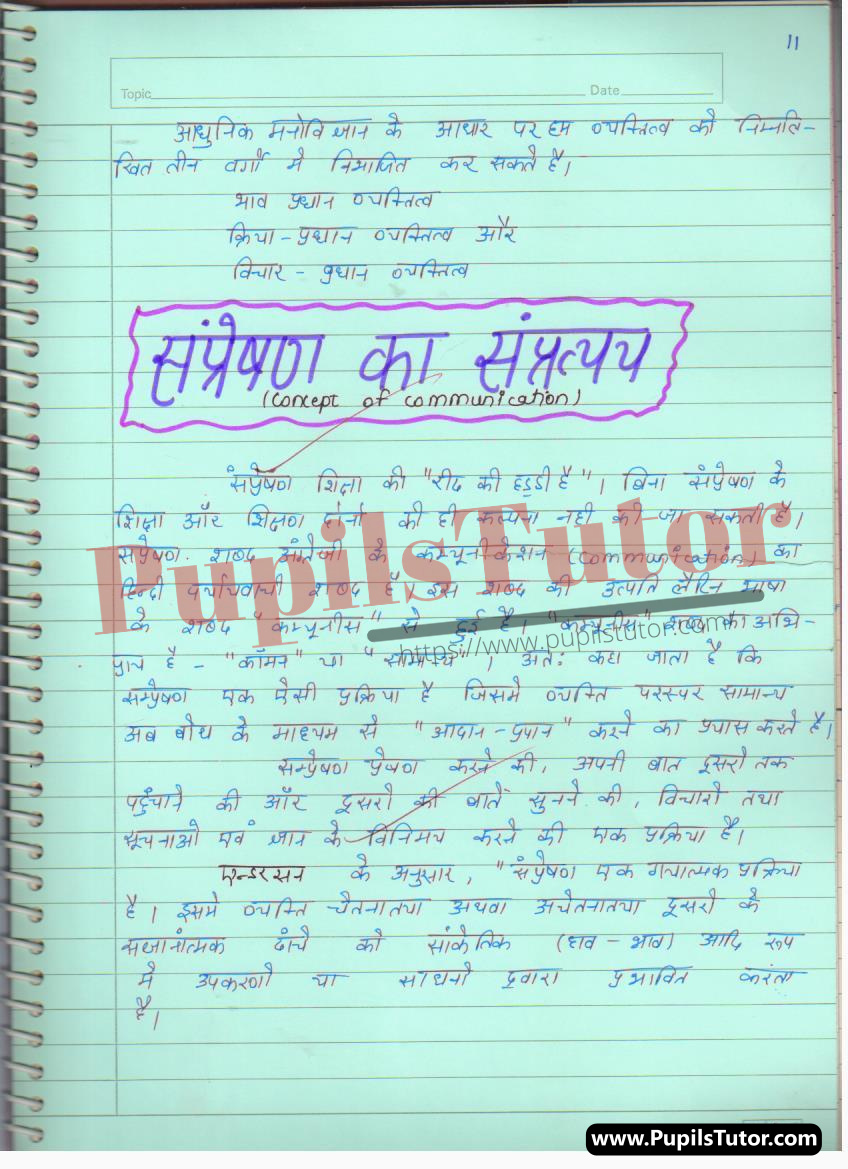 11
Topic Date
आधुनिक मनोविज्ञान के आधार पर हम व्यक्तित्व को निम्नलि-
खित तीन वर्गों में विभाजित कर सकते है।
भाव प्रधान व्यक्तित्व
क्रिया - प्रधान व्यक्तित्व और
विचार - प्रधान व्यक्तित्व
संप्रेषण का संप्रत्यय
(concept of communication)
संप्रेषण शिक्षा की "रीढ की हड्डी है"। बिना संप्रेषण के
शिक्षा और शिक्षण दोनों की ही कल्पना नही की जा सकती है।
सप्रेषण शब्द अंग्रेजी के कम्यूनीकेशन (communication) का
हिन्दी पर्यायवाची शब्द है। इस शब्द की उत्पति लैटिन भाषा
के शब्द "कम्यूनीस" से हुई है। "कम्यूनीस" शब्द का अभि-
प्राय है - "कॉमन" या "सामान्य"। अतः कहा जाता है कि
सम्प्रेषण एक ऐसी प्रक्रिया है जिसमे व्यक्ति परस्पर सामान्य
अब बोध के माध्यम से "आदान - प्रदान" करने का प्रयास करते है।
सम्प्रेषण प्रेषण करने की, अपनी बात दूसरो तक
पहुँचाने की और दूसरो की बातें सुनने की, विचारो तथा
सूचनाओ एवं ज्ञान के विनिमय करने की एक प्रक्रिया है।
एन्डरसन के अनुसार, "संप्रेषण एक गत्यात्मक प्रक्रिया
है। इसमे व्यक्ति चेतनातया अथवा अचेतनातया दूसरो के
सज्ञानात्मक ढांचे को सांकेतिक (हाव - भाव) आदि रूप
मे उपकरणो या साधनो द्वारा प्रभावित करता
है।
PupilsTutor
https://www.pupilstutor.com
www.PupilsTutor.com